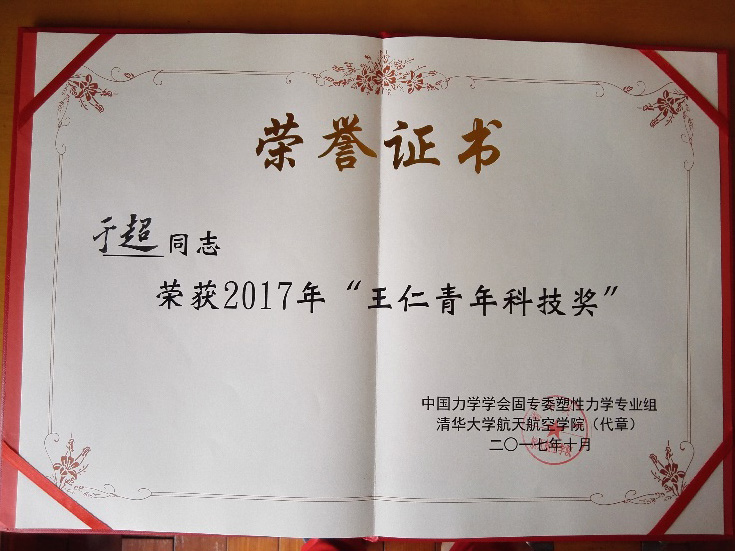 荣誉证书
于超同志
荣获2017年“王仁青年科技奖”
中国力学学会固专委塑性力学专业组
清华大学航天航空学院（代章）
二〇一七年十月